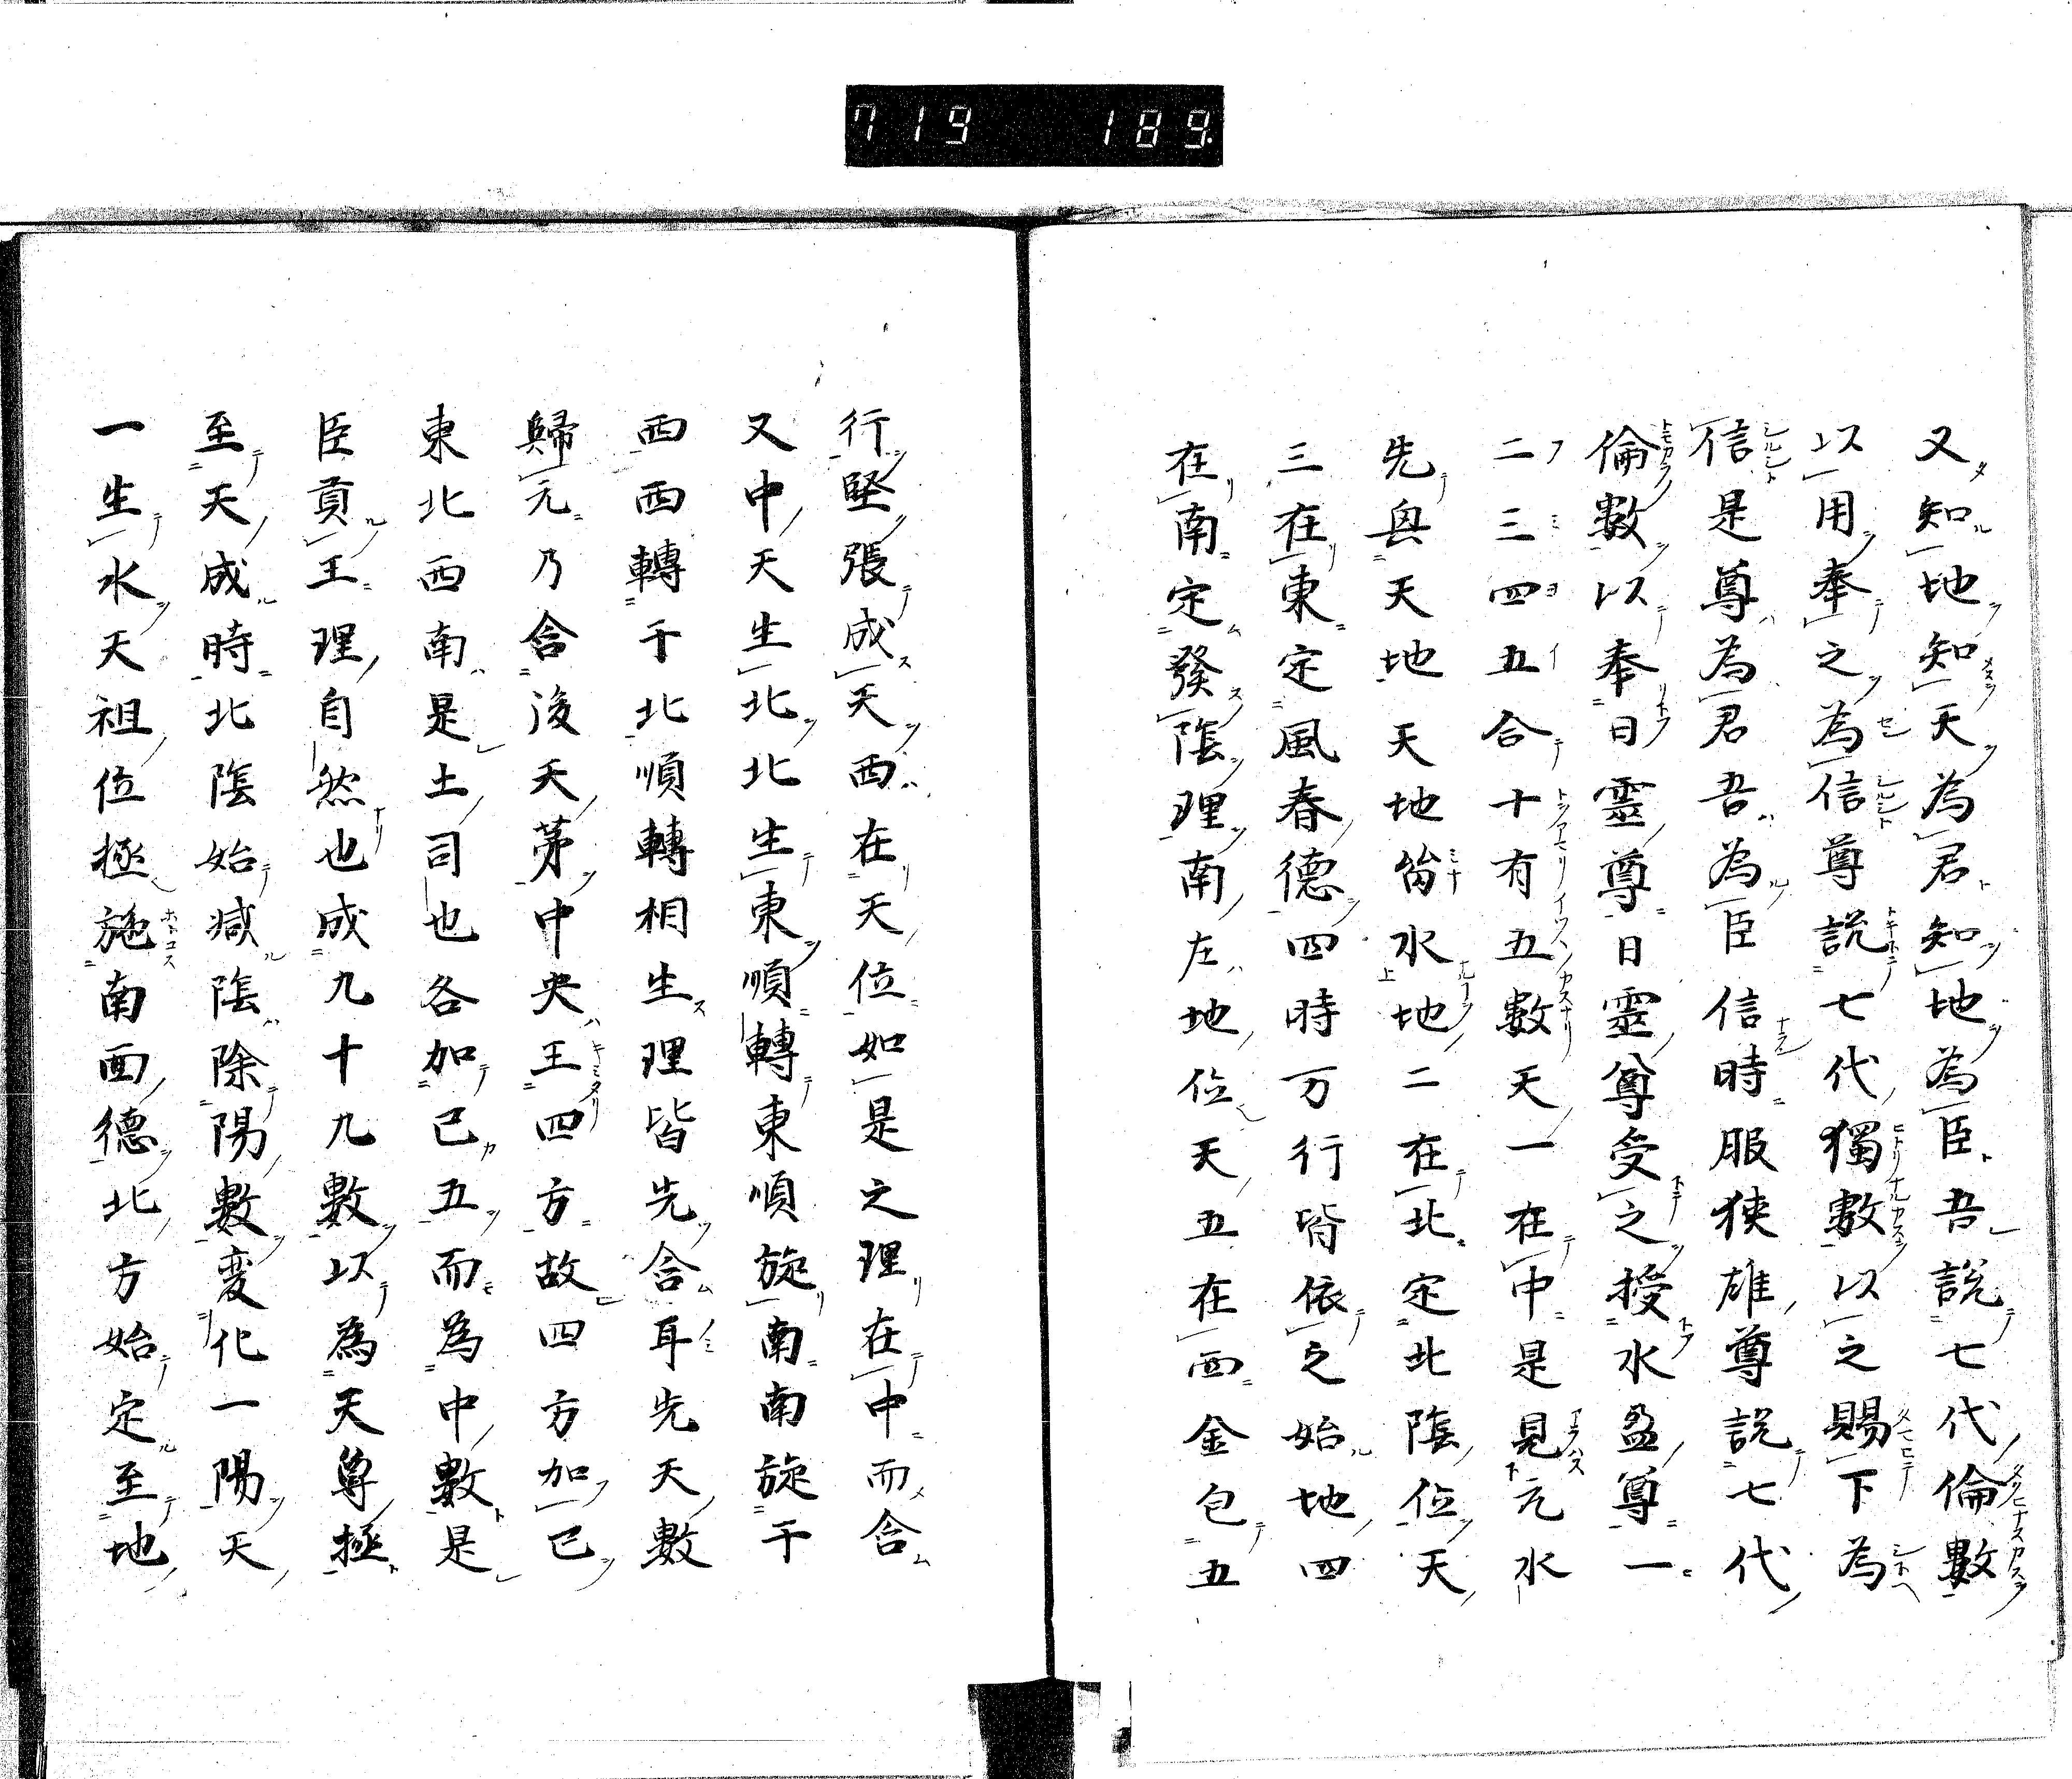 719 189.
又知地知天為君知地為臣吾説七代倫數
以用奉之為信尊説七代獨數以之賜下為
信是尊為君吾為臣信時服狹雄尊説七代
倫數以奉日靈尊日靈尊受之授水盈尊一
二三四五合十有五數天一在中是見元水
先與天地天地㑋水地二在北定北陰位天
三在東定風春德四時万行皆依之始地四
在南定發陰理南左地位天五在西金包五
行堅張成天西在天位如是之理在中而含
又中天生北北生東順轉東順旋南南旋于
西西轉于北順轉相生理皆先含耳先天數
歸元乃含後天茅中央王四方故四方加已
東北西南是土司也各加已五而為中數是
臣貢王理自然也成九十九數以為天尊極
至天成時北陰始减陰除陽數変化一陽天
一生水天祖位極施南面德北方始定至地